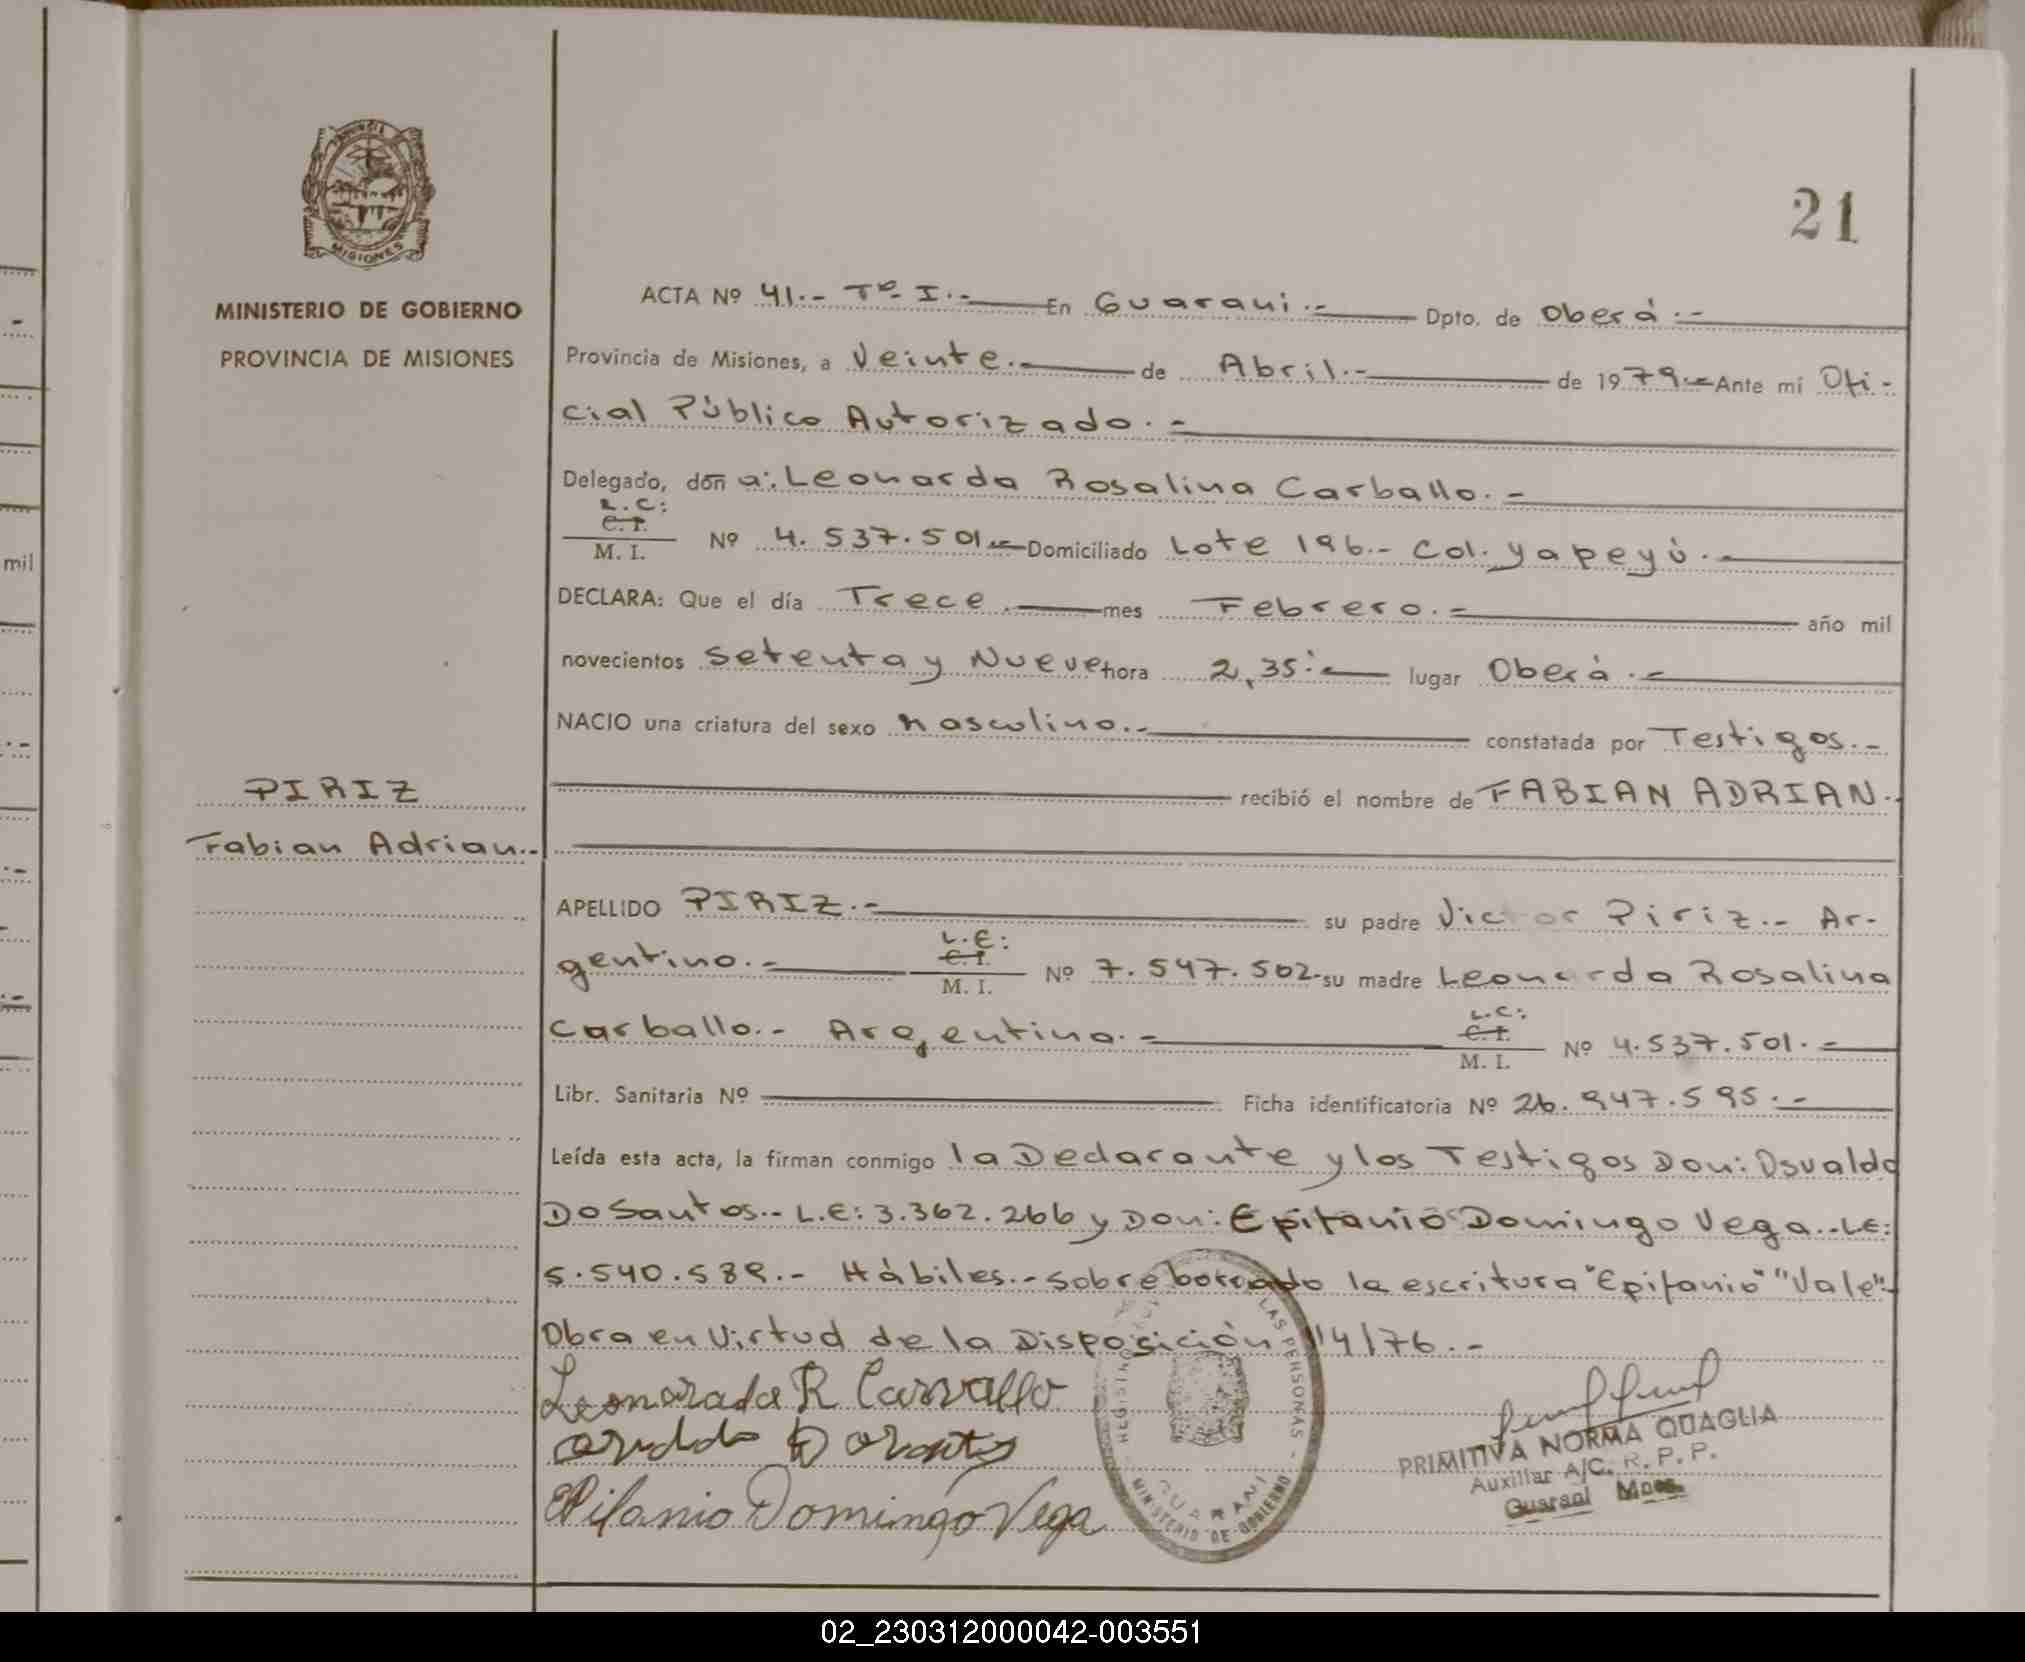 21
PROVINCIA DE
MISIONES
MINISTERIO DE GOBIERNO
PROVINCIA DE MISIONES
ACTA Nº 41.- Tº- I.- En Guarani.- Dpto. de Oberá.-
Provincia de Misiones, a Veinte.- de Abril.- de 1979.- Ante mí Ofi-
cial Público Autorizado.-
Delegado, don a: Leonarda Rosalina Carballo.-
L.C:
C.I.
M. I. Nº 4.537.501.- Domiciliado Lote 196.- Col. Yapeyú.-
DECLARA: Que el día Trece.- mes Febrero.- año mil
novecientos Setenta y Nueve hora 2,35:- lugar Oberá.-
NACIO una criatura del sexo Masculino.- constatada por Testigos.-
recibió el nombre de FABIAN ADRIAN.-
PIRIZ
Fabian Adrian.-
APELLIDO PIRIZ.- su padre Victor Piriz.- Ar-
L.E:
C.I.
gentino.- M. I. Nº 7.547.502.- su madre Leonarda Rosalina
L.C:
C.I.
Carballo.- Argentina.- M. I. Nº 4.537.501.-
Libr. Sanitaria Nº Ficha identificatoria Nº 26.947.595.-
Leída esta acta, la firman conmigo la Declarante y los Testigos Don: Osvaldo
Do Santos.- L.E: 3.362.266 y Don: Epifanio Domingo Vega.- L.E:
5.540.589.- Hábiles.- Sobre borrado la escritura "Epifanio" "Vale".-
Obra en Virtud de la Disposición 114/76.-
Leonarada R Carvallo
Epifanio Domingo Vega
LAS PERSONAS
GUARANI
MINISTERIO DE GOBIERNO
PRIMITIVA NORMA QUAGLIA
Auxiliar A/C. R. P. P.
Guarani Mnes.
mil
02_230312000042-003551